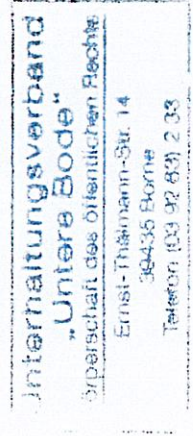 Unterhaltungsverband
„Untere Bode“
Körperschaft des öffentlichen Rechts
Ernst-Thälmann-Str. 14
39435 Borne
Telefon (03 92 63) 2 33